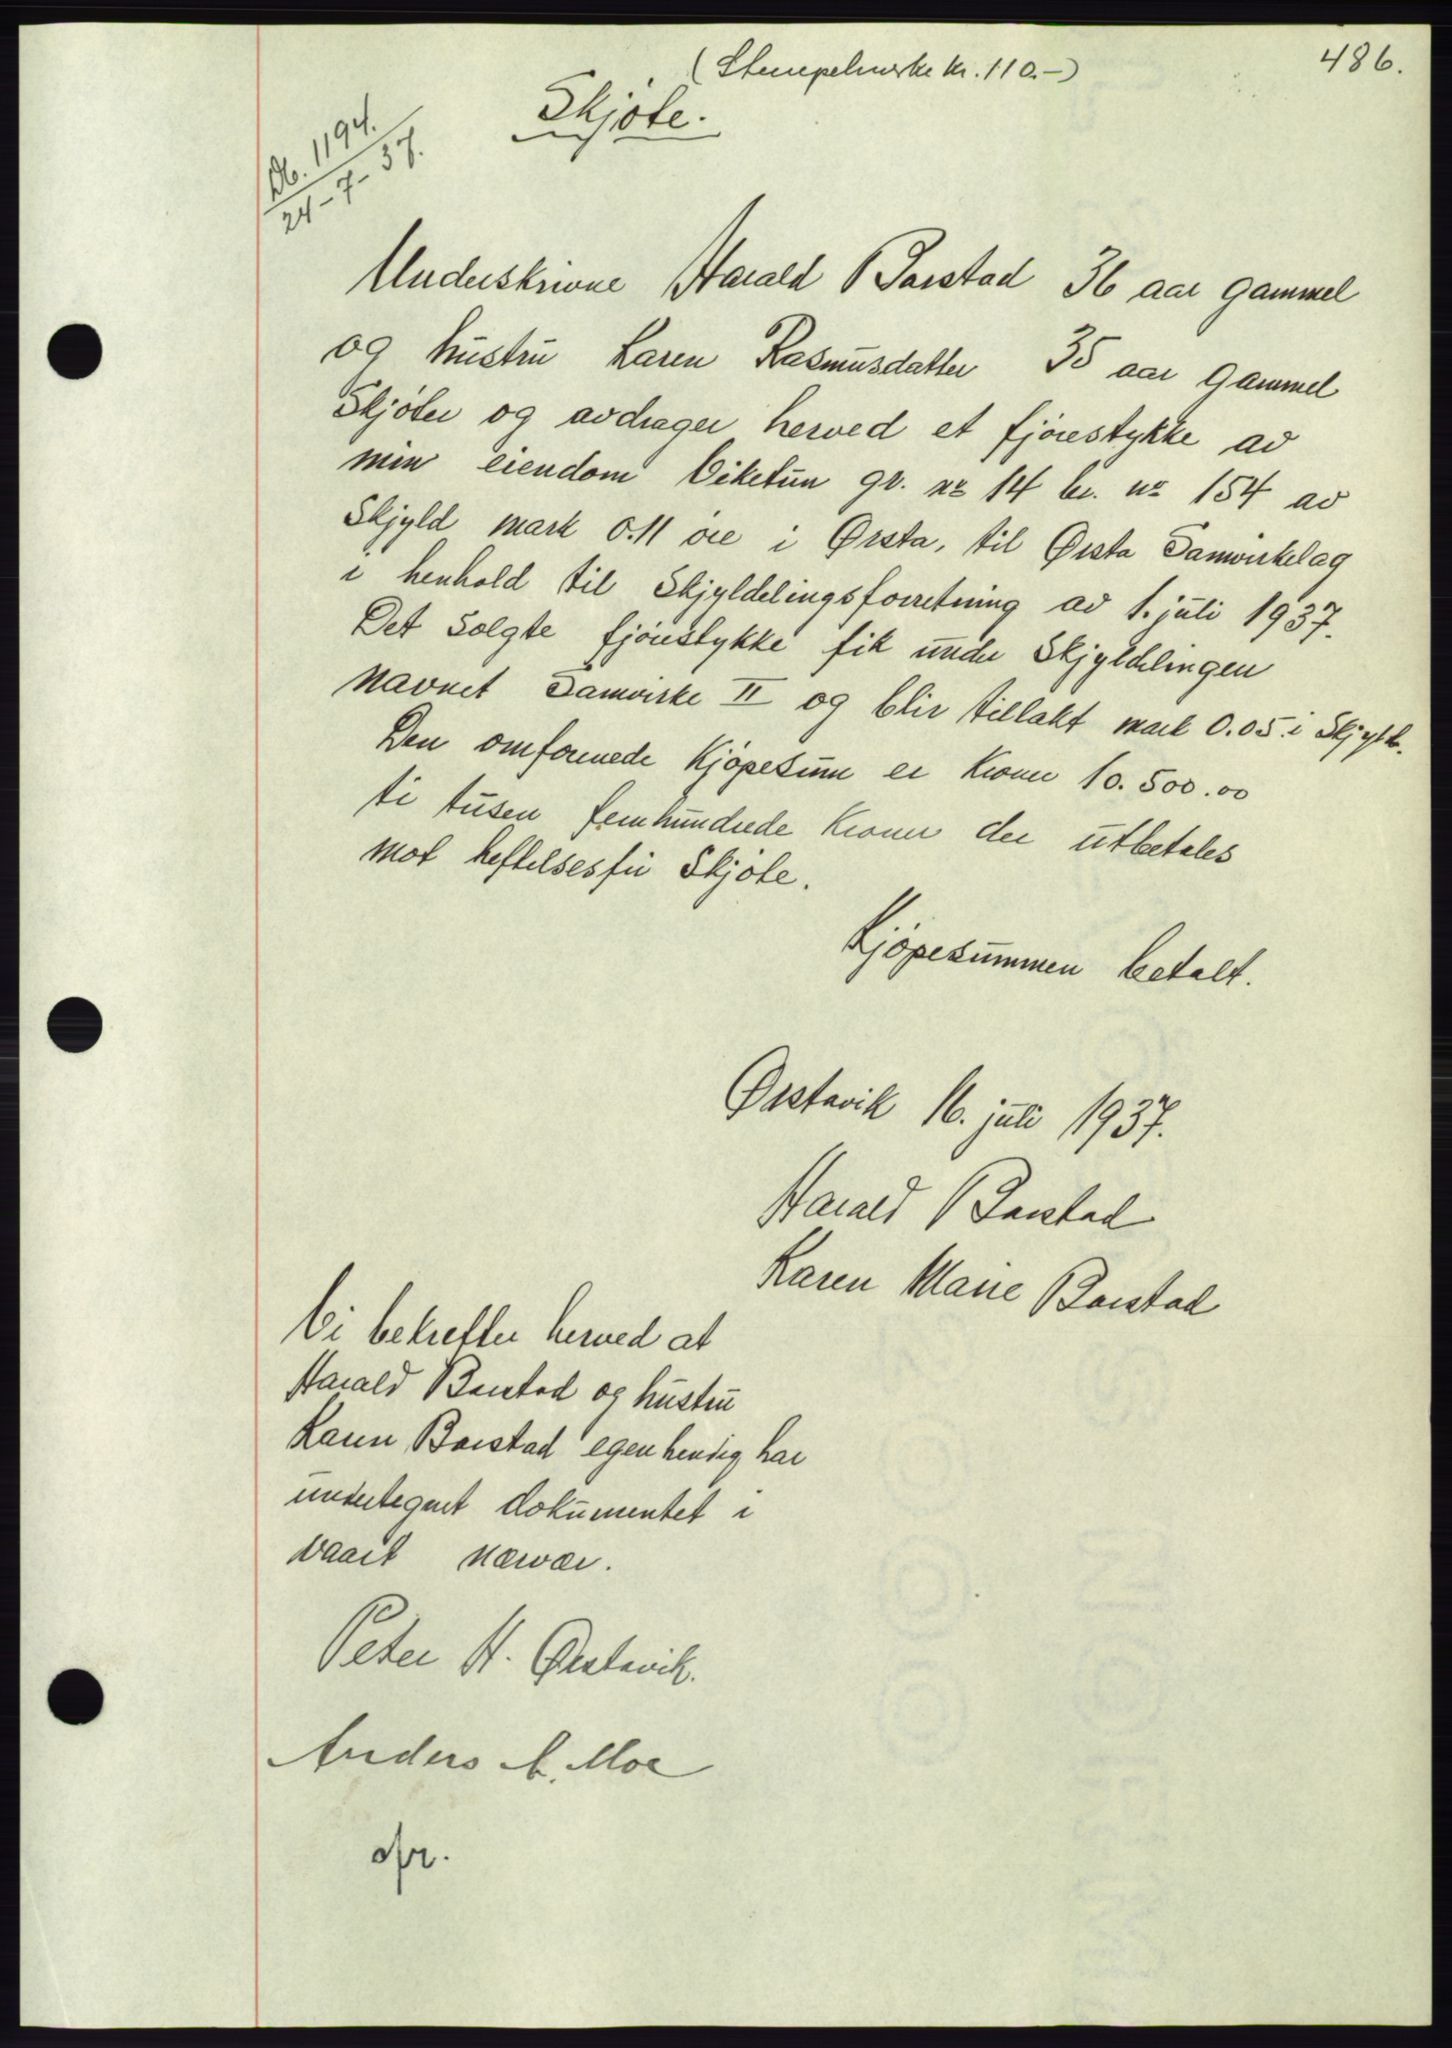 486.
(Stempelmerke kr. 110.-)
Skjøte.
Db. 1194.
24-7-37.
Underskrivne Harald Barstad 36 aar gammel
og hustru Karen Rasmusdatter 35 aar gammel
Skjøter og avdrager herved et fjørestykke av
min eiendom Viketun gr. nr 14 br. nr 154 av
Skjyld mark 0.11 øre i Ørsta, til Ørsta Samvirkelag
i henhold til Skjyldelingsforretning av 1. juli 1937.
Det solgte fjørestykke fik under Skjyldelingen
navnet Samvirke II og blir tillakt mark 0.05 i Skjyld.
Den omforenede Kjøpesum er Kroner 10.500.00
ti tusen femhundrede Kroner der utbetales
mot heftelsesfri Skjøte.
Kjøpesummen betalt.
Ørstavik 16. juli 1937.
Harald Barstad
Karen Marie Barstad
Vi bekrefter herved at
Harald Barstad og hustru
Karen Barstad egenhendig har
undertegnet dokumentet i
vaart nærvær.
Peter H. Ørstavik.
Anders A. Moe